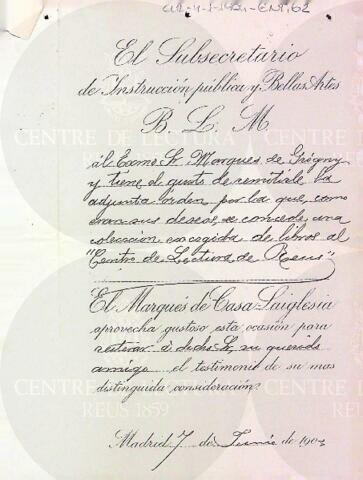 El Subsecretario
de Instrucción pública y Bellas Artes
B. L. M.
al Excmo. Sr. Marques de Grigny
y tiene el gusto de remitirle la
adjunta orden por la que, como
eran sus deseos, se concede una
colección escogida de libros al
"Centro de Lectura de Reus"
El Marqués de Casa-Laiglesia
aprovecha gustoso esta ocasión para
reiterar á dicho Sr, su querido
amigo el testimonio de su mas
distinguida consideración.
Madrid 7 de Junio de 190
CENTRE DE LECTURA
REUS 1859